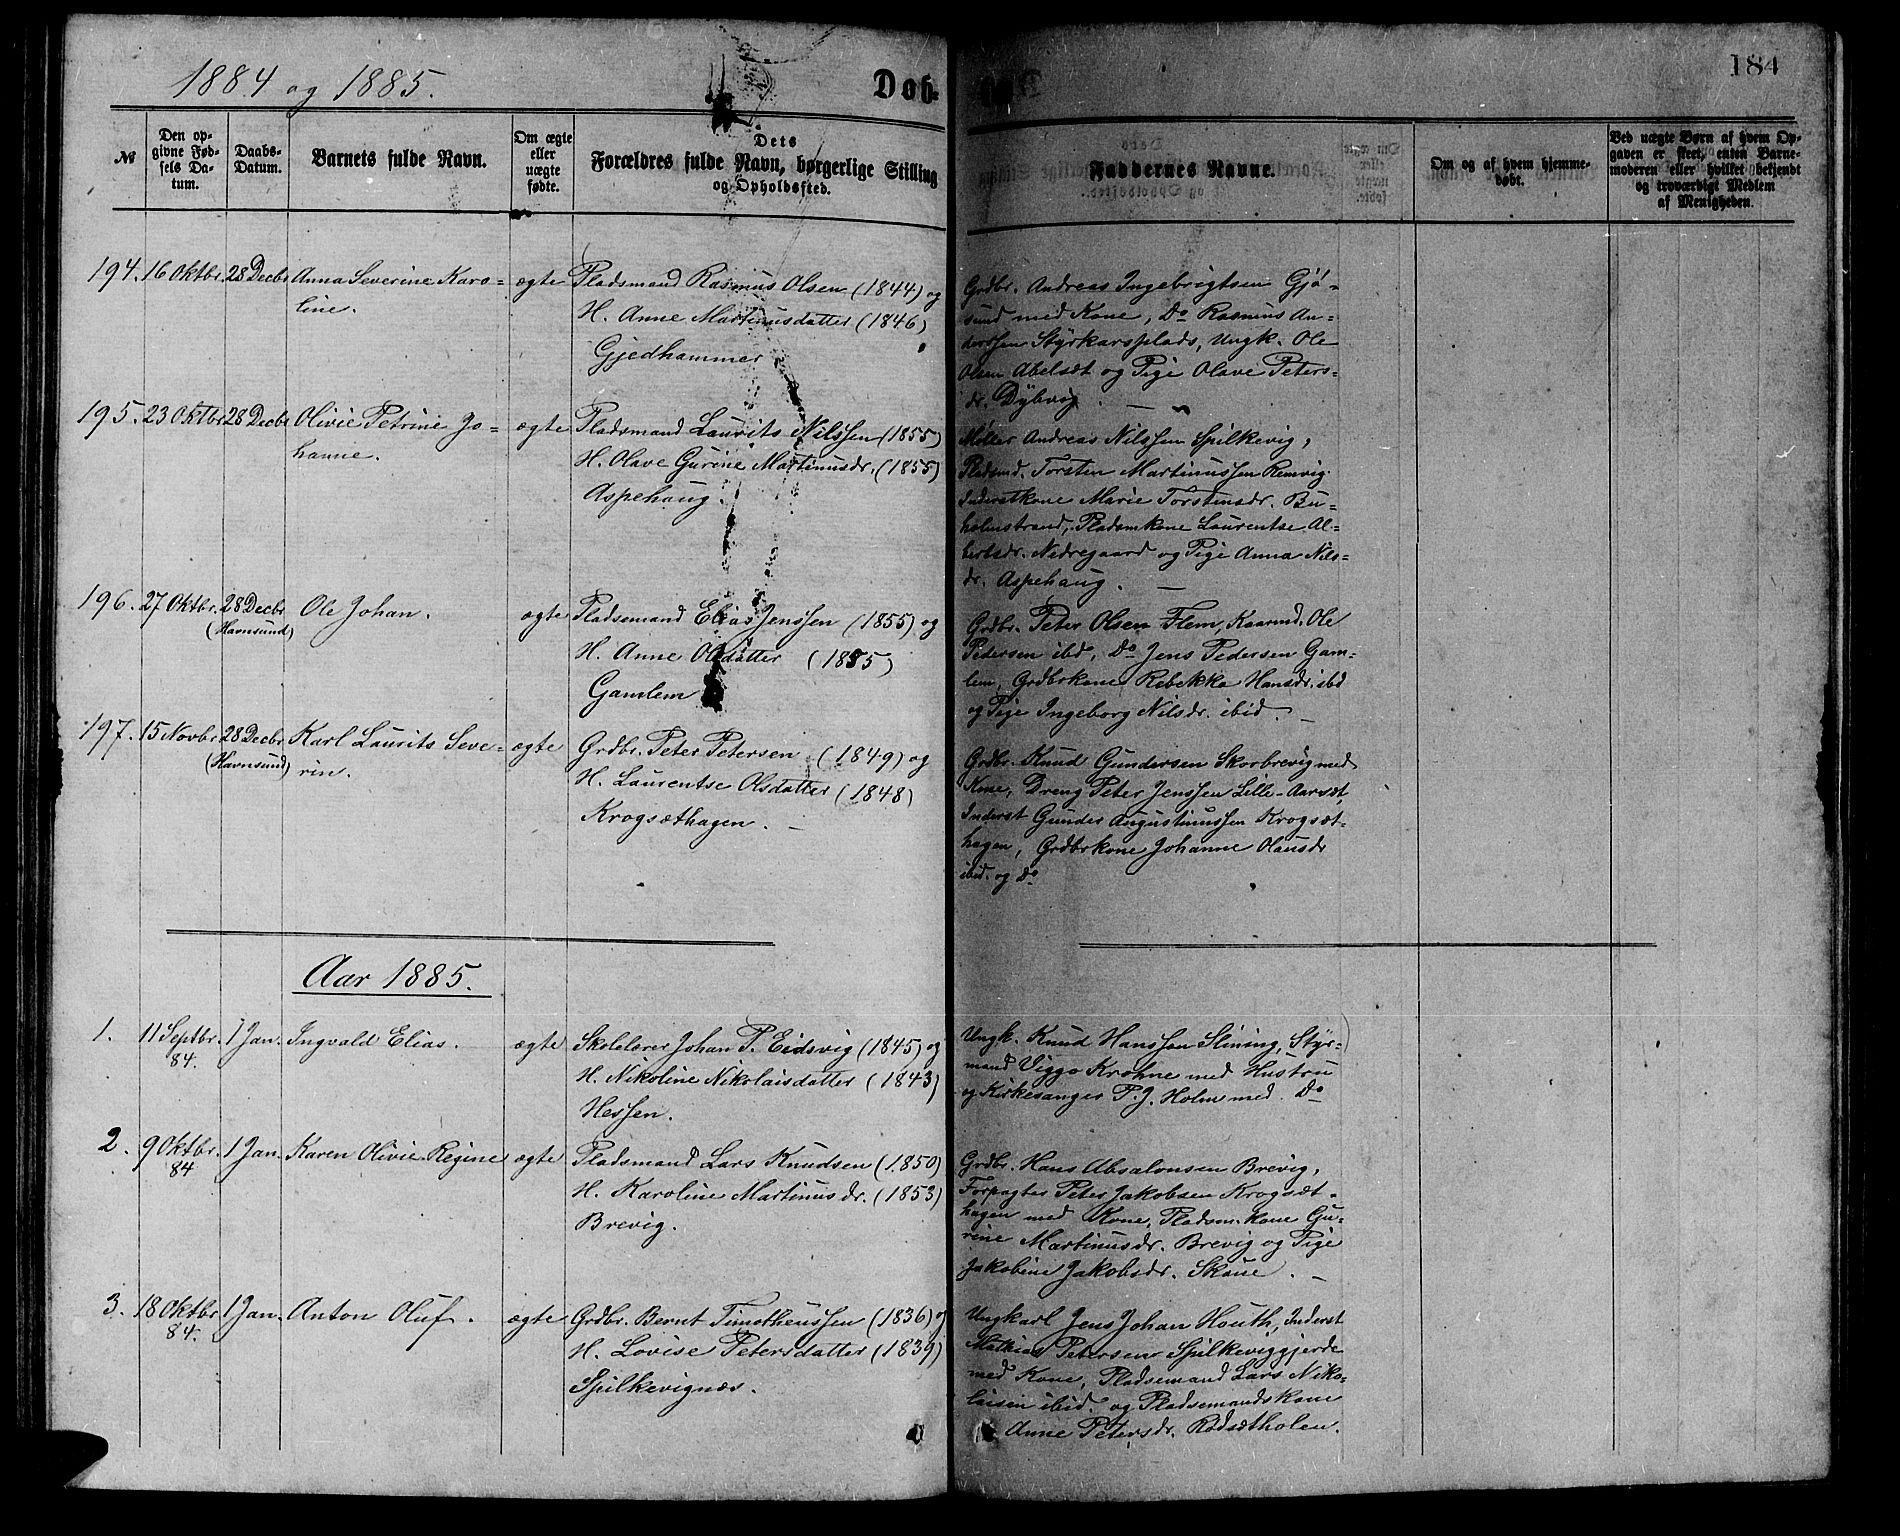 1884 og 1885.
Dob-
184
№
Den op-
givne Fød-
sels Da-
tum.
Daabs-
Datum.
Barnets fulde Navn.
Om ægte
eller
uægte
fødte.
Dets
Forældres fulde Navn, borgerlige Stilling
og Opholdssted.
Faddernes Navne.
Om og af hvem hjemme-
døbt.
Ved uægte Børn af hvem Op-
gaven er skeet, enten Barne-
moderen eller hvilket bekjendt
og troværdigt Medlem
af Menigheden.
194. 16 Oktbr. 28 Decbr Anna Severine Karo- ægte Pladsmand Rasmus Olsen (1844) og
line. H. Anne Martinusdatter (1846)
Gjedhammer
Grdbr. Andreas Ingebrigtsen Gjö-
sund med Kone, Do Rasmus An-
derssen Styrkarsplads, Ungk. Ole
Olsen Abelsæt og Pige Olave Peters-
dr. Dybvig. —
195. 23 Oktbr 28 Decbr Olivie Petrine Jo- ægte Pladsmand Laurits Nilssen (1855)
hanne. H. Olave Gurine Martinusdr. (1855)
Aspehaug.
Møller Andreas Nilssen Spilkevig,
Pladsmd. Torsten Martinussen Remvig.
Inderstkone Marie Torstensdr. Bu-
holmstrand, Pladsmkone Laurentse Al-
bertsdr. Nedregaard og Pige Anna Nils-
dr. Aspehaug. —
196. 27 Oktbr. 28 Decbr Ole Johan. ægte Pladsemand Elias Jenssen (1855) og
(Havnsund) H. Anne Olsdatter (1855)
Gamlem
Grdbr. Peter Olsen Flem, Kaarmd. Ole
Pedersen ibd, Do Jens Pedersen Gam-
lem, Grdbrkone Rebekka Hansdr. ibd
og Pige Ingeborg Nilsdr. ibid. —
197. 15 Novbr 28 Decbr Karl Laurits Seve- ægte Grdbr. Peter Petersen (1849) og
(Havnsund) rin. H. Laurentse Olsdatter (1848)
Krogsæthagen. —
Grdbr. Knud Gundersen Skorbrevig med
Kone, Dreng Peter Jenssen Lille-Aarsæt,
Inderst Gunder Augustinussen Krogsæt-
hagen, Grdbrkone Johanne Olausdr
ibid. og Do
Aar 1885.
1. 11 Septbr. 1 Jan. Ingvald Elias. ægte Skolelærer Johan P. Eidsvig (1845) og
84. H. Nikoline Nikolaisdatter (1843)
Hessen.
Ungk. Knud Hanssen Slining, Styr-
mand Viggo Krohne med Hustru
og Kirkesanger P. J. Holm med Do
2. 9 Oktbr. 1 Jan. Karen Olivie Regine ægte Pladsmand Lars Knudsen (1850)
84 H. Karoline Martinusdr. (1853)
Brevig.
Grdbr. Hans Absalonsen Brevig,
Forpagter Peter Jakobsen Krogsæt-
hagen med Kone, Pladsm.kone Gu-
rine Martinusdr. Brevig og Pige
Jakobine Jakobsdr. Skaue. —
3. 18 Oktbr 1 Jan. Anton Oluf. ægte Grdbr. Bernt Timotheussen (1836) og
84. H. Lovise Petersdatter (1839)
Spilkevignæs.
Ungkarl Jens Johan Houth, Inderst
Mathias Petersen Spilkeviggjerde
med Kone, Pladsemand Lars Niko-
laisen ibid. og Pladsemandskone
Anne Petersdr. Rødsætholen.